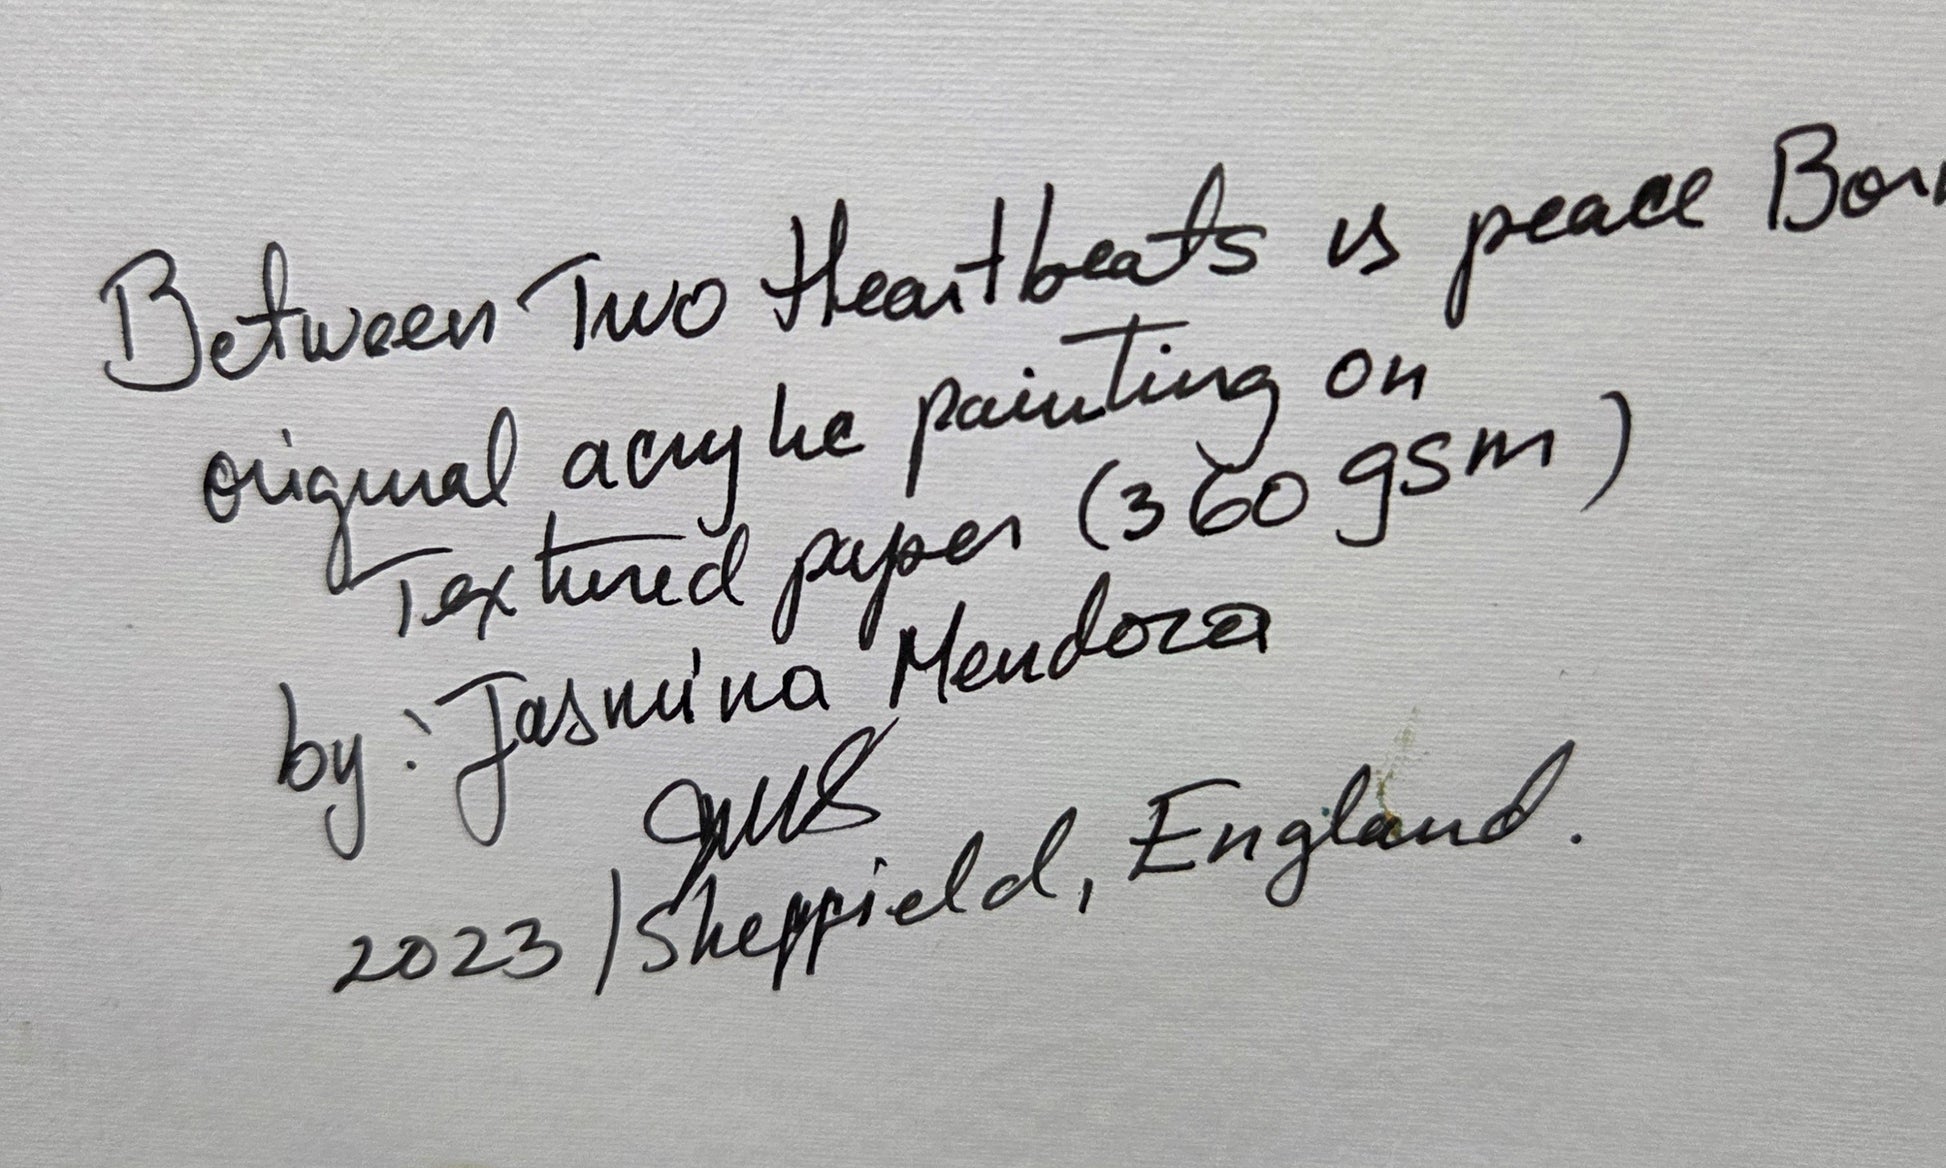 Between Two Heartbeats is peace Born
original acrylic painting on
Textured paper (360 gsm)
by: Jasmina Mendoza
2023 / Sheffield, England.